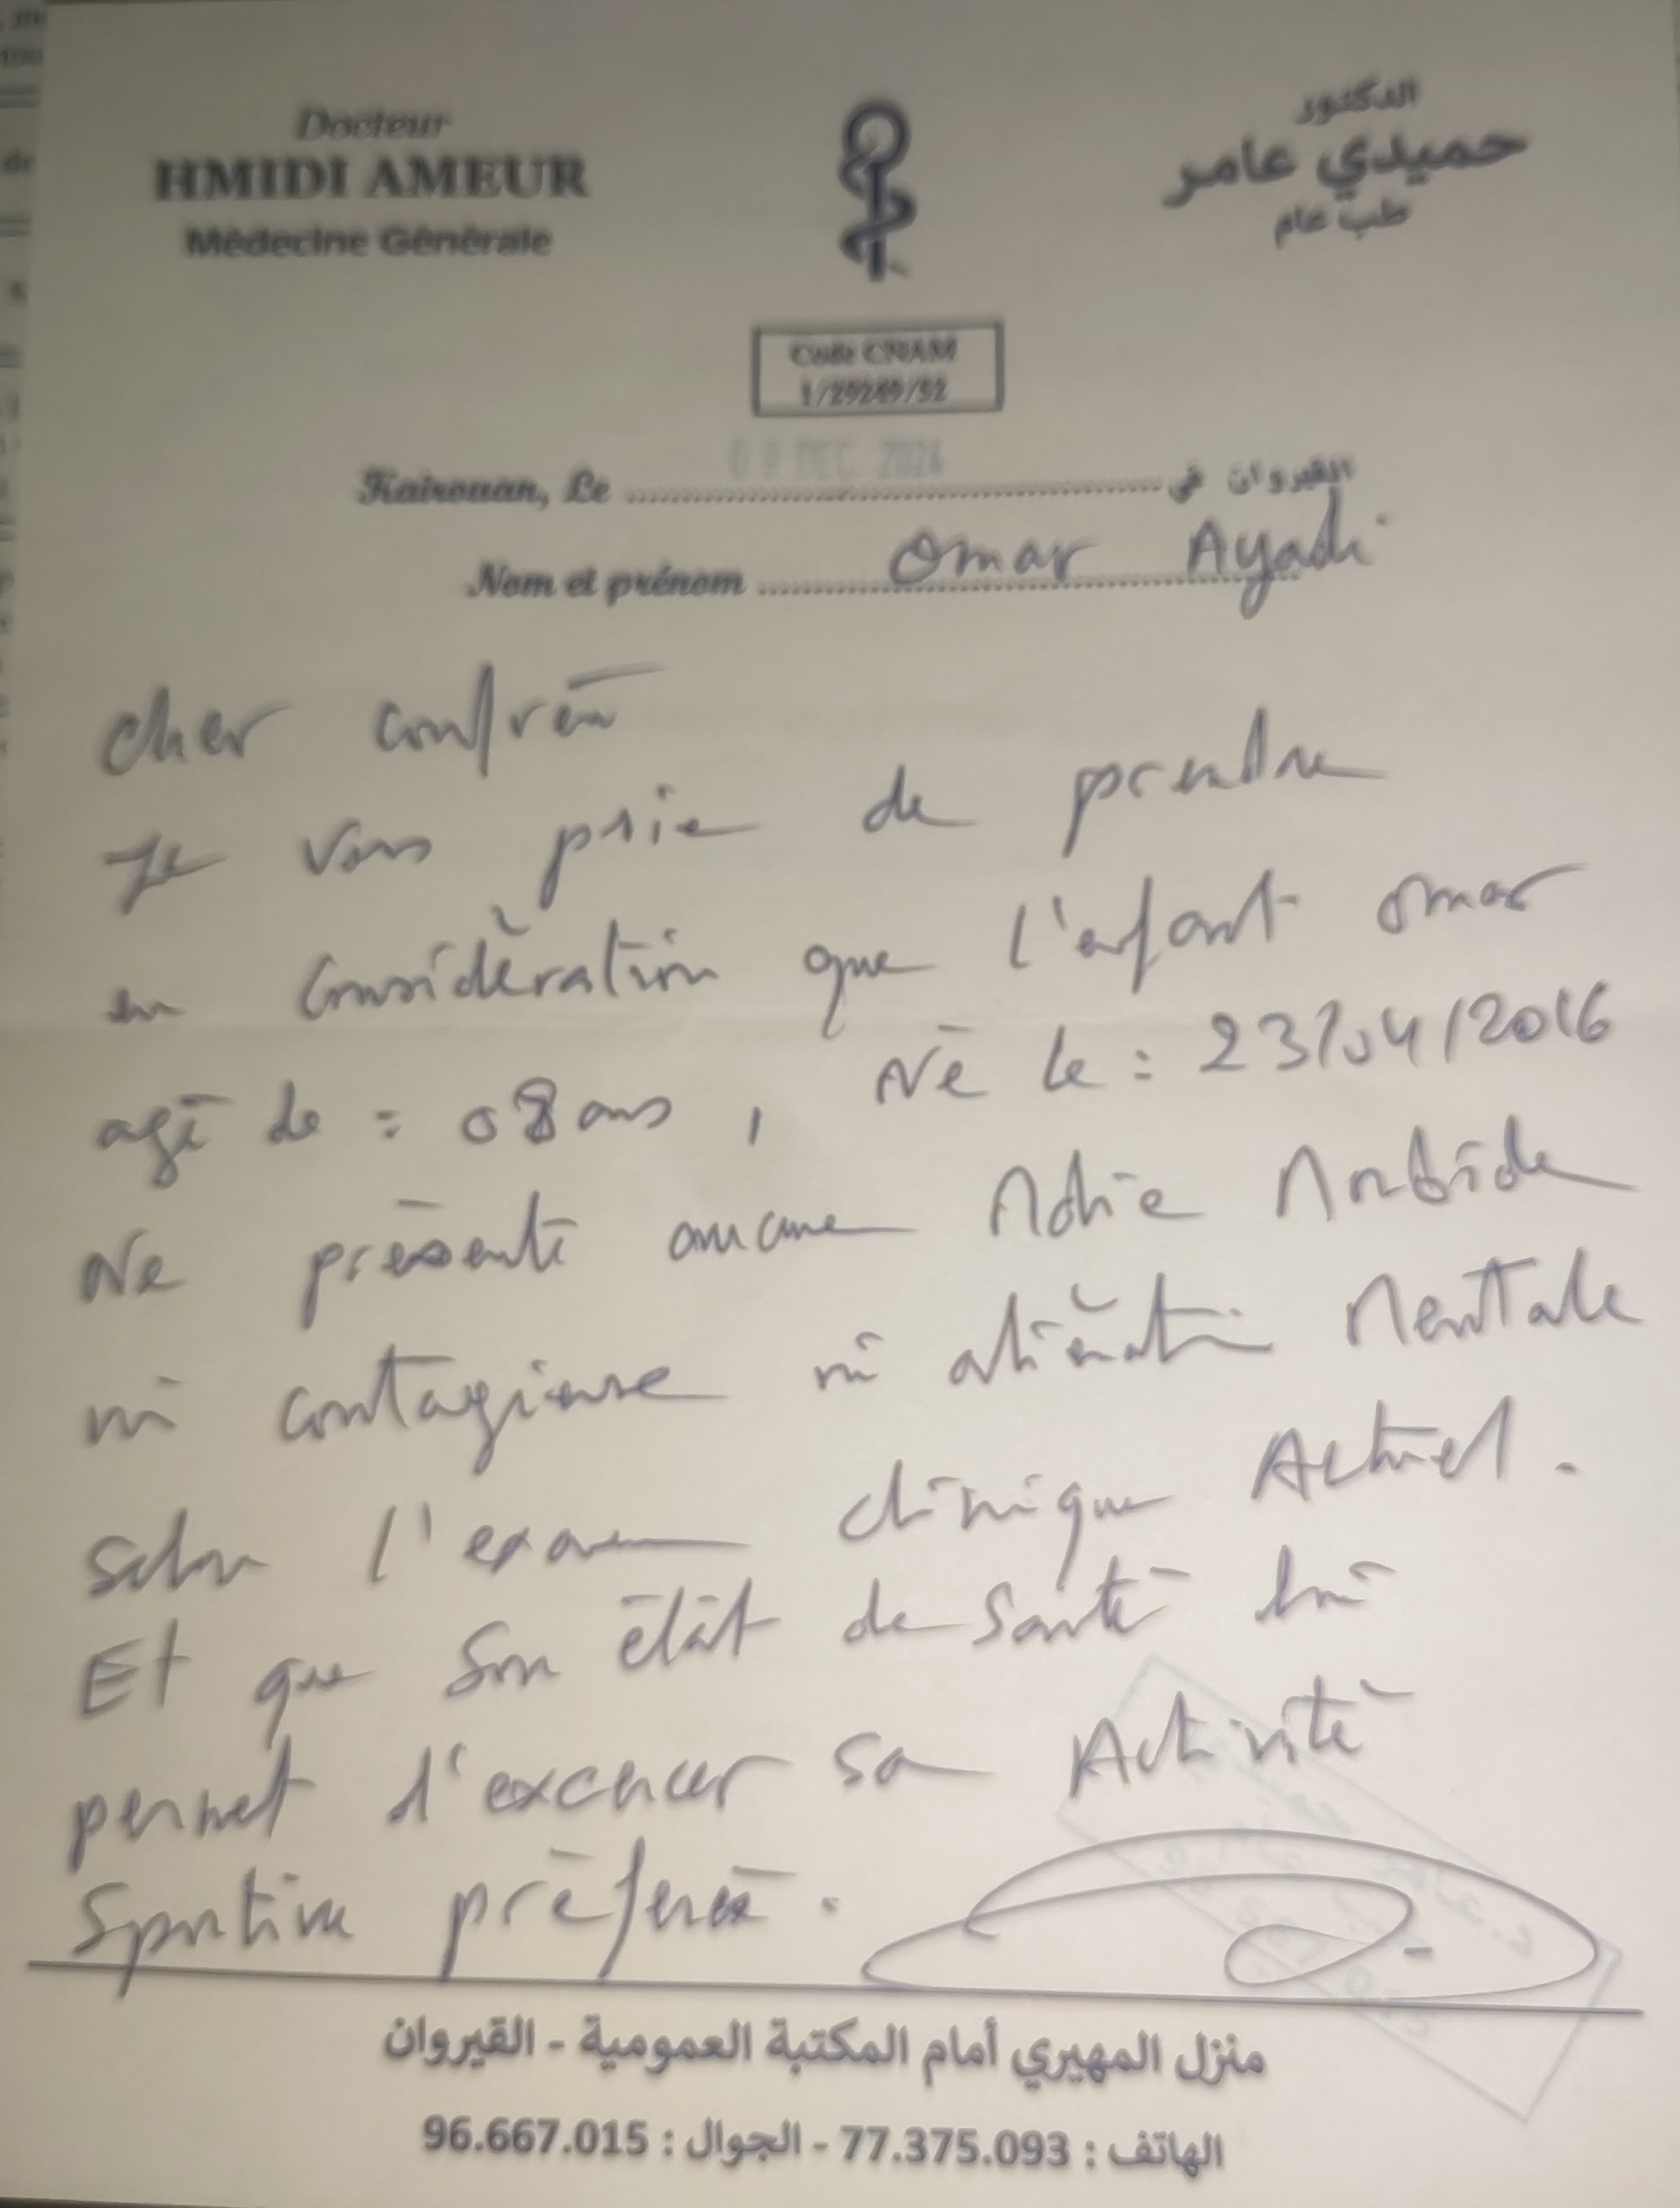 Docteur
HMIDI AMEUR
Médecine Générale
الدكتور
حميدي عامر
طب عام
Code CNAM
1/29249/52
DEC. 2024
Kairouan, Le القيروان في
Nom et prénom Omar Ayadi
cher confrère
Je vous prie de prendre
en considération que l'enfant omar
agé de : 08 ans , Né le : 23/04/2016
Ne présente aucune Mdie Morbide
ni contagieuse ni aliénation Mentale
selon l'examen clinique Actuel .
Et que son état de santé lui
permet d'exercer sa Activité
Sportive préférée .
منزل المهيري أمام المكتبة العمومية - القيروان
الهاتف : 77.375.093 - الجوال : 96.667.015